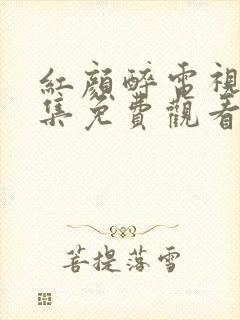 紅顏醉電視
集免費觀看
菩提落雪